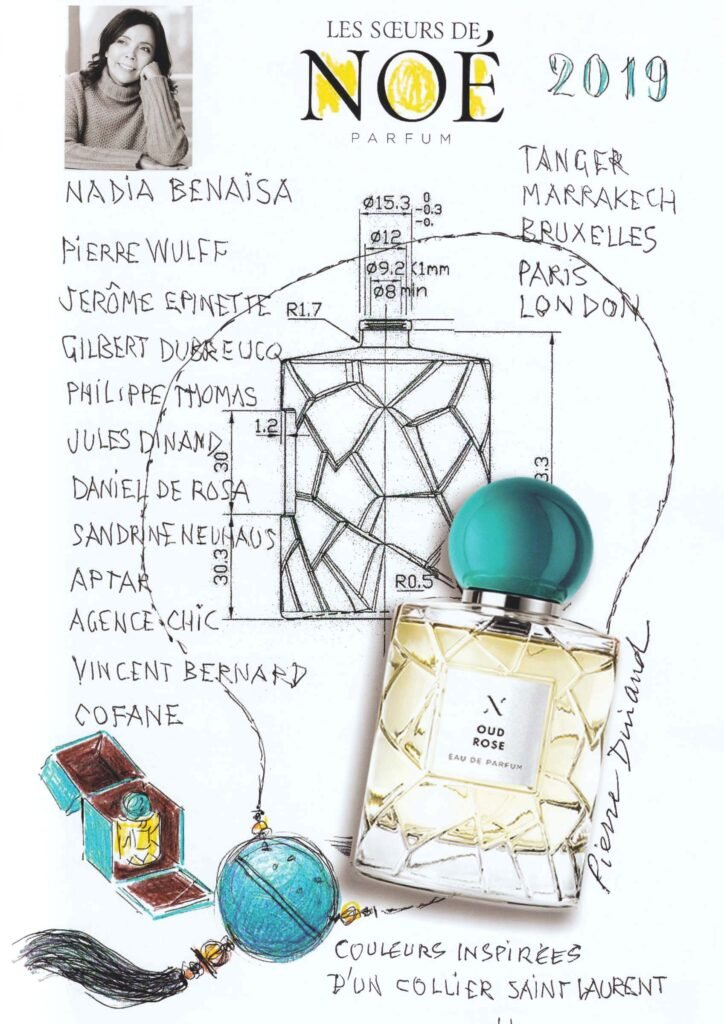 LES SŒURS DE
NOÉ
PARFUM
2019
NADIA BENAÏSA
PIERRE WULFF
JERÔME EPINETTE
GILBERT DUBREUCQ
PHILIPPE THOMAS
JULES DINAND
DANIEL DE ROSA
SANDRINE NEUHAUS
APTAR
AGENCE CHIC
VINCENT BERNARD
COFANE
TANGER
MARRAKECH
BRUXELLES
PARIS
LONDON
Ø15.3 0
-0.3
-0.
Ø12
Ø9.2 X1mm
Ø8min
R1.7
1.2
30
30.3
3.3
R0.5
OUD
ROSE
EAU DE PARFUM
Pierre Dinand
COULEURS INSPIRÉES
D'UN COLLIER SAINT LAURENT